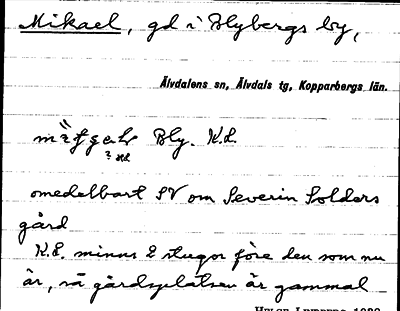 Mikael, gd i Blybergs by,
Älvdalens sn, Älvdals tg, Kopparbergs län.
Bly. K.L.
omedelbart SV om Severin Solders
gård
K.L. minns 2 stugor före den som nu
är, så gårdsplatsen är gammal